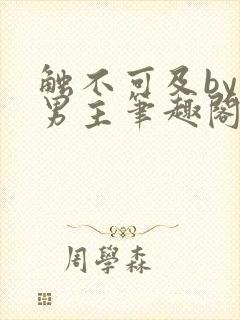 触不可及by
男主筆趣閣
周學森